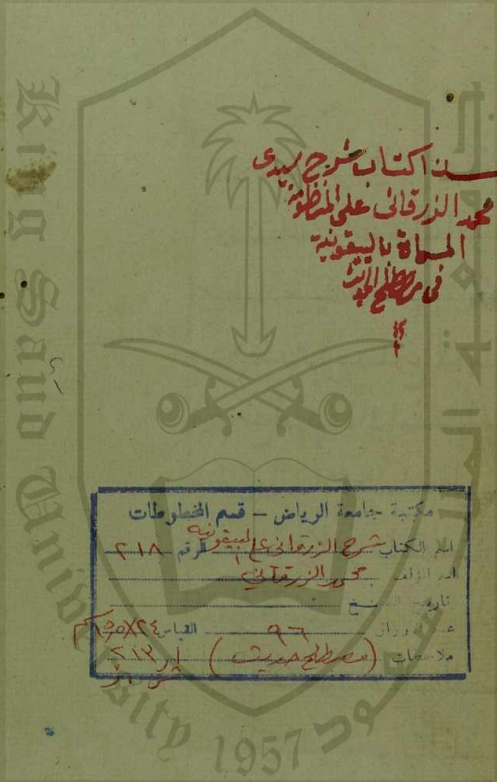 هذا كتاب شرح سيدى
محمد الزرقانى على المنظومة
المسماة بالبيقونية
فى مصطلح الحديث
King Saud University
1957
مكتبة جامعة الرياض - قسم المخطوطات
اسم الكتاب شرح الزرقاني على البيقونية الرقم ٢١٨
اسم المؤلف محمد الزرقاني
تاريخ النسخ
عدد الأوراق ٩٦ القياس
ملاحظات (مصطلح حديث) ٢١٣